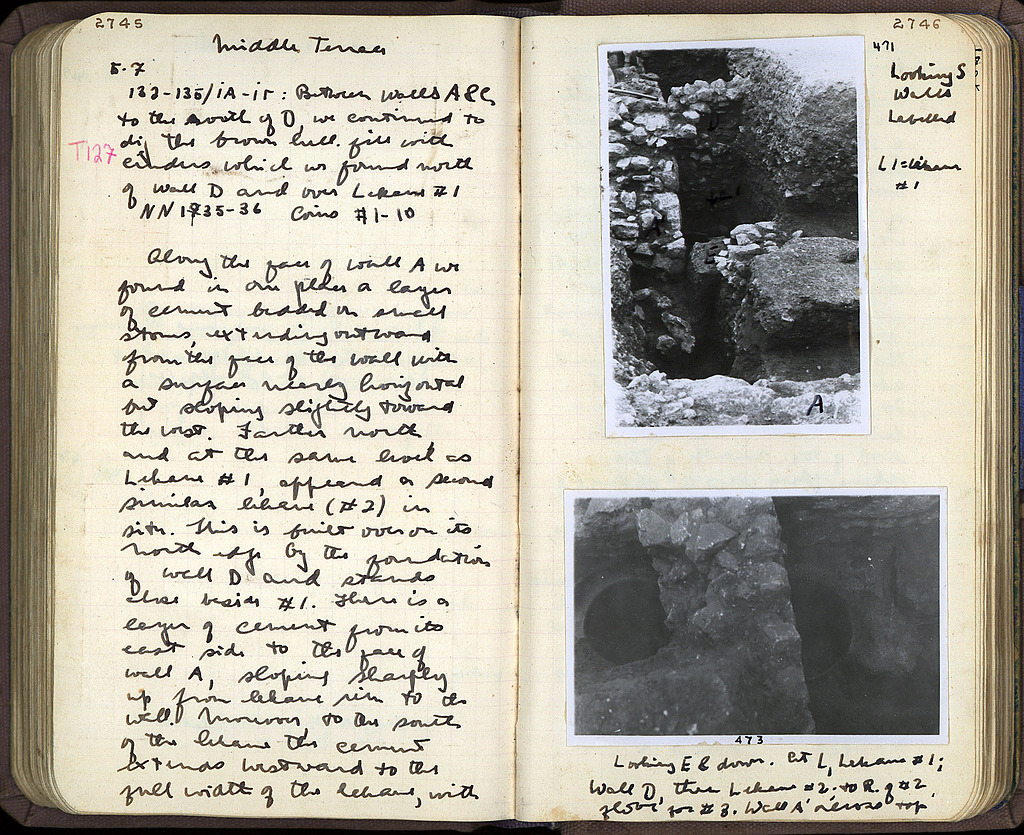 2745
Middle Terrace
5.7
133-135/ΙΑ-ΙΓ: Between walls A & C
to the south of D, we continued to
dig the brown hell. fill with
T127
cinders which we found north
of wall D and over Lekane #1
NN 1935-36 Coins #1-10
Along the face of wall A we
found in one place a layer
of cement bedded on small
stones, extending outward
from the face of the wall with
a surface nearly horizontal
but sloping slightly toward
the west. Farther north,
and at the same level as
Lekane #1, appeared a second
similar lekane (#2) in
situ. This is built over on its
north edge by the foundation
of wall D and stands
close beside #1. There is a
layer of cement from its
east side to the face of
wall A, sloping sharply
up from lekane rim to the
wall. Moreover, to the south
of the lekane the cement
extends westward to the
full width of the lekane, with
2746
471
Looking S
Walls
Labelled
L1=Lekane
#1
D
A
473
Looking E & down. At L, Lekane #1;
Wall D, then Lekane #2. to R. of #2
for #3. Wall A across top.